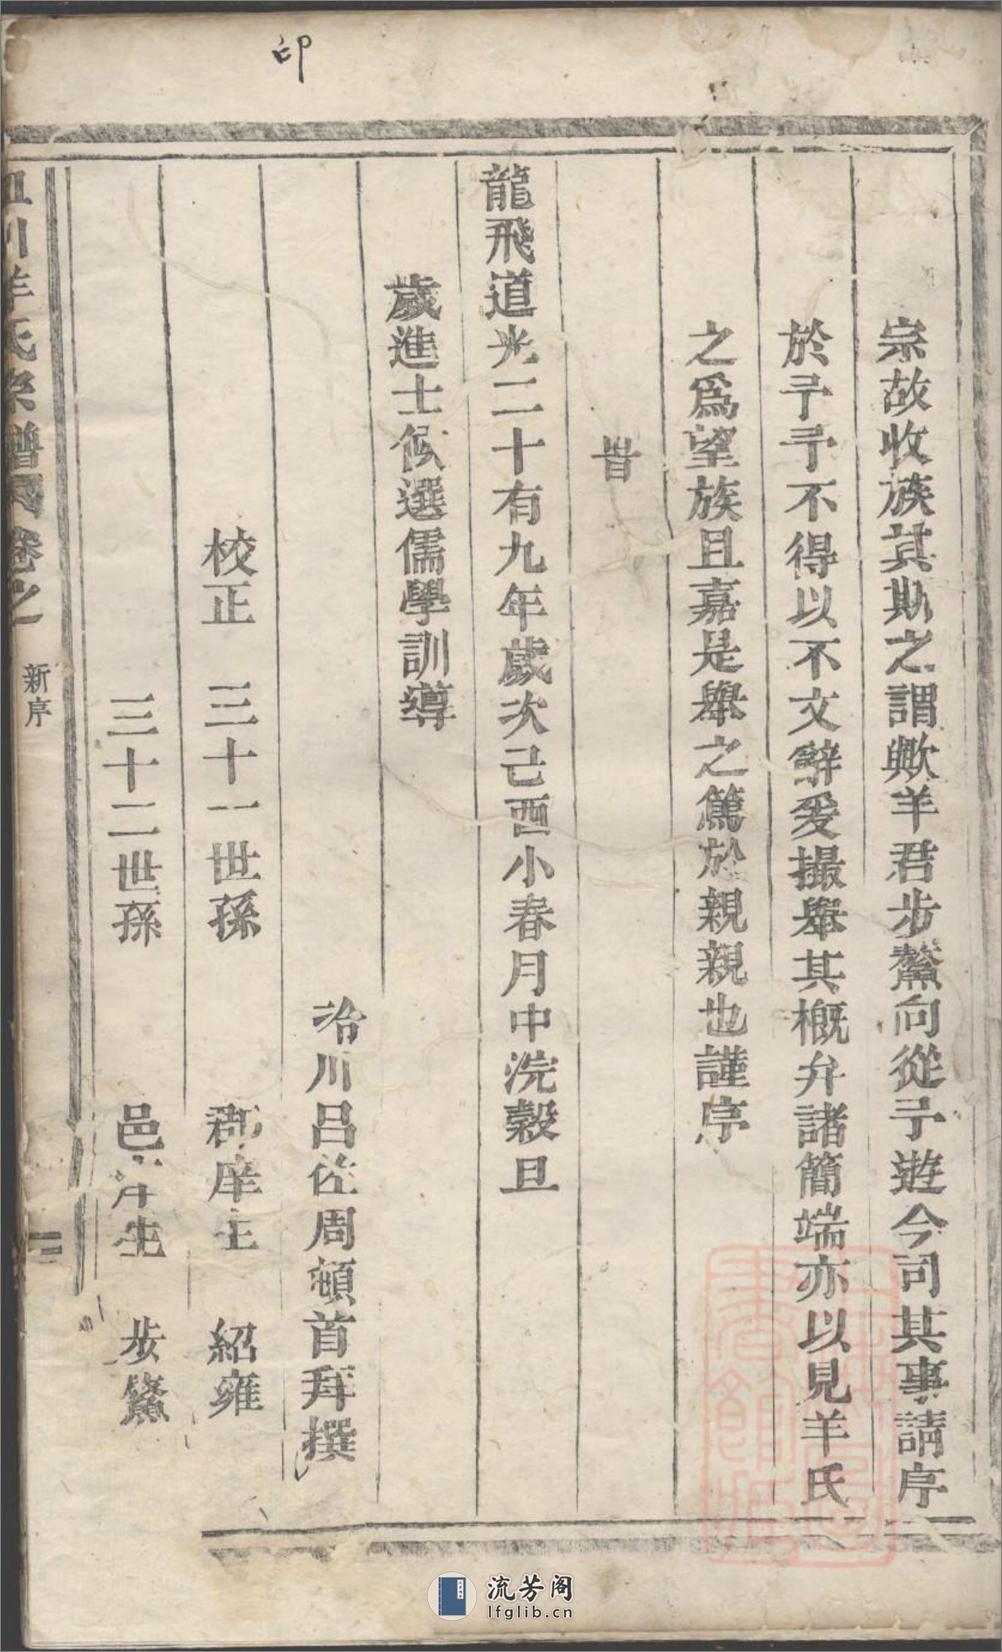 印
宗故收族其斯之謂歟羊君步鰲向從予遊今司其事請序
於予予不得以不文辭爰撮舉其概弁諸簡端亦以見羊氏
之爲望族且嘉是舉之篤於親親也謹序
旹
龍飛道光二十有九年歲次己酉小春月中浣穀旦
歲進士候選儒學訓導
冶川呂佐周頓首拜撰
校正 三十一世孫 郡庠生 紹雍
三十二世孫 邑庠生 步鰲
川羊氏宗譜 卷之 新序 二
流芳阁
lfglib.cn